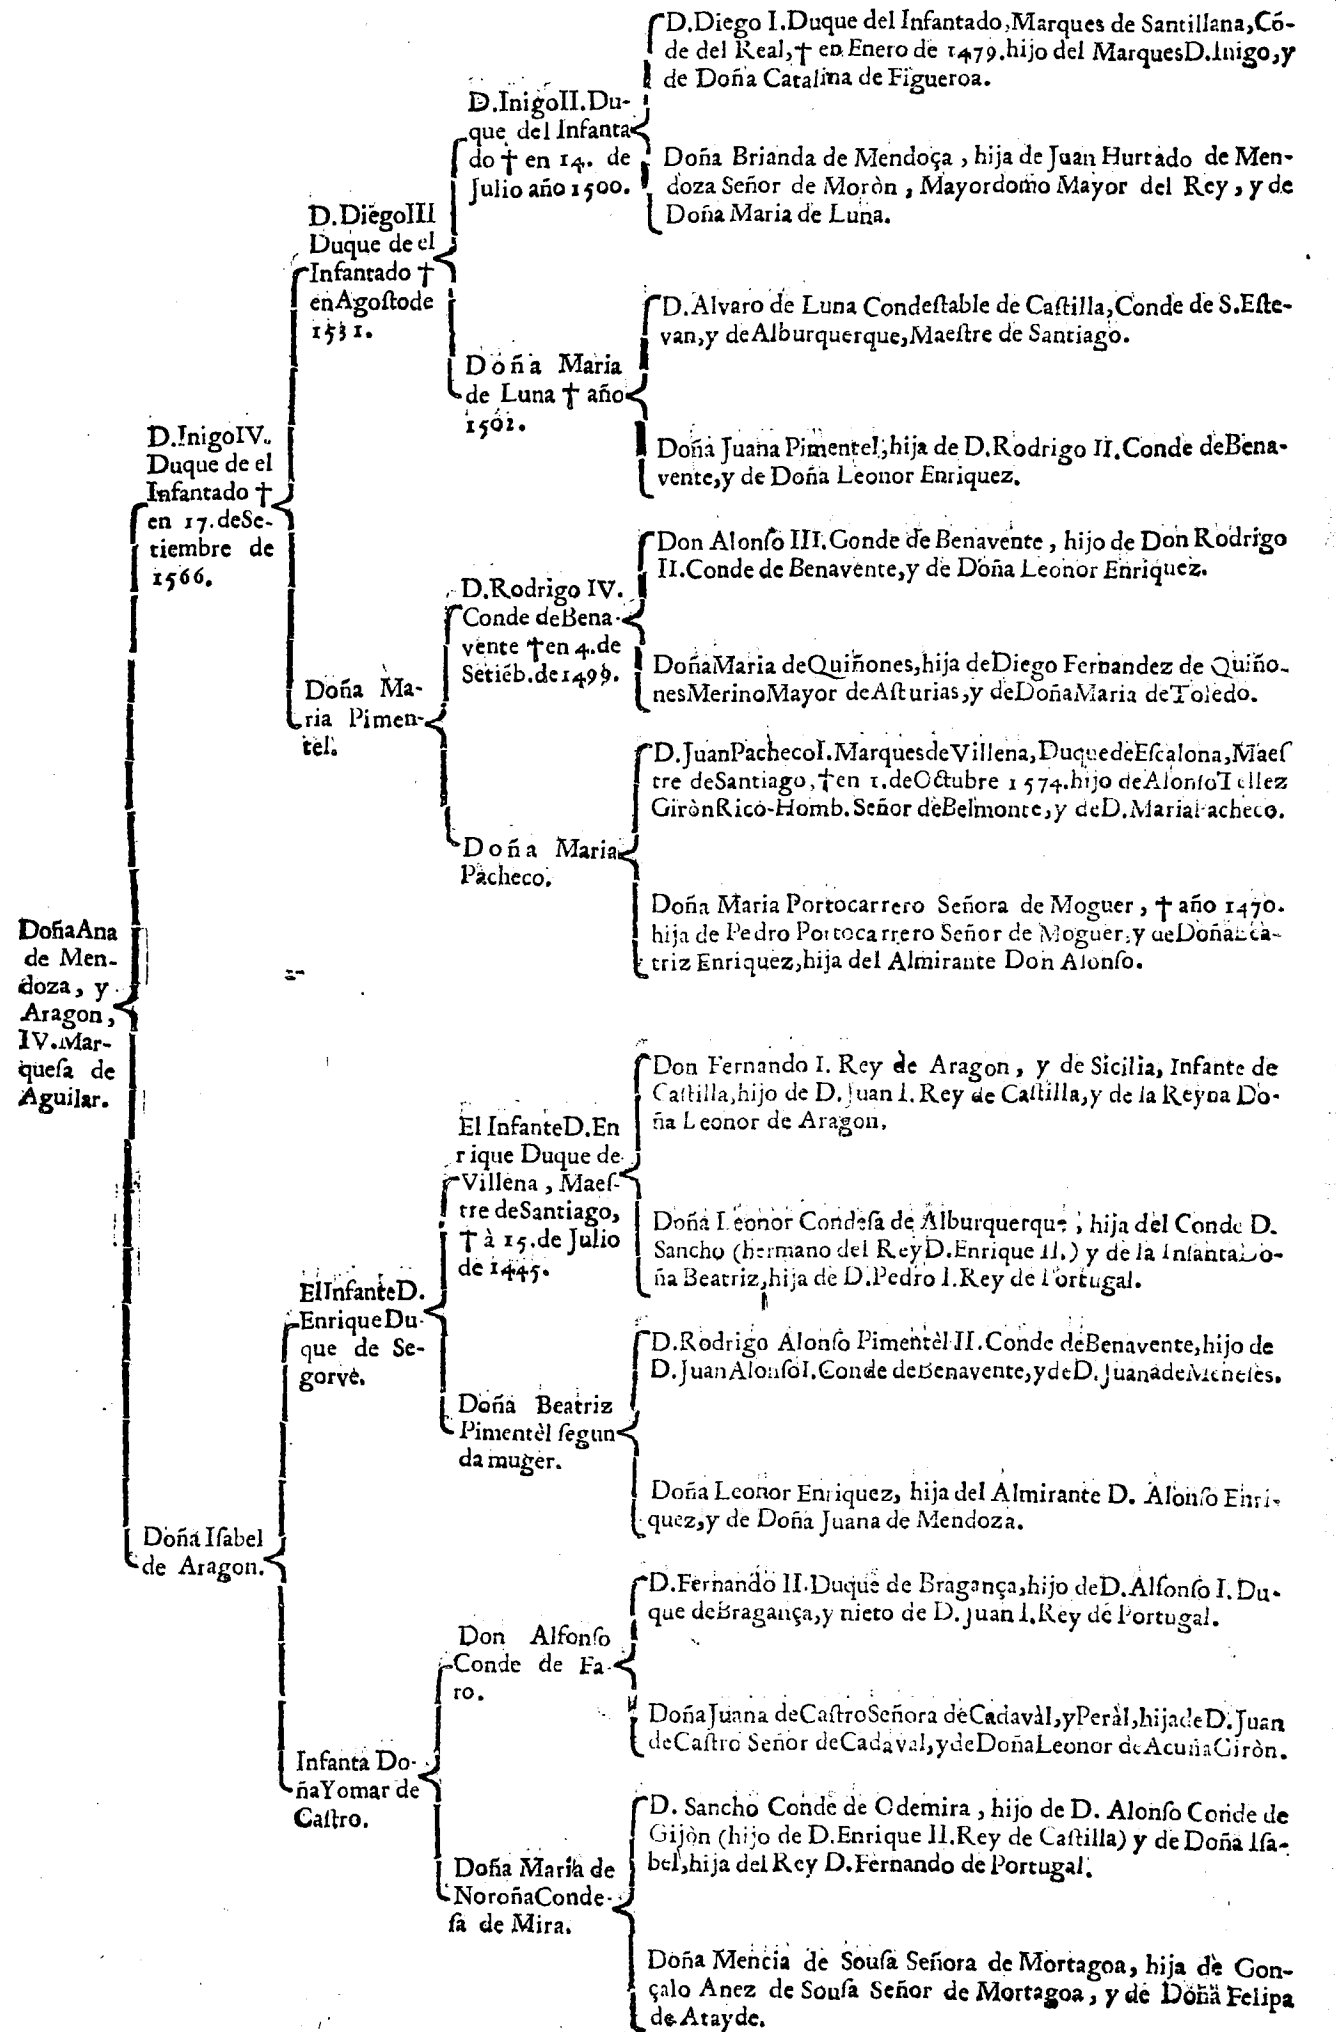 DoñaAna
de Men-
doza, y
Aragon,
IV.Mar-
queſa de
Aguilar.
D.InigoIV.
Duque de el
Infantado †
en 17.deSe-
tiembre de
1566.
Doña Iſabel
de Aragon.
D.DiegoIII
Duque de el
Infantado †
enAgoſtode
1531.
Doña Ma-
ria Pimen-
tel.
ElInfanteD.
EnriqueDu-
que de Se-
gorve.
Infanta Do-
ñaYomar de
Caſtro.
D.InigoII.Du-
que del Infanta
do † en 14. de
Julio año 1500.
Doña Maria
de Luna † año
1502.
D.Rodrigo IV.
Conde deBena-
vente †en 4.de
Setiēb.de1499.
Doña Maria
Pacheco.
El InfanteD.En
rique Duque de
Villena, Maeſ-
tre deSantiago,
† à 15.de Julio
de 1445.
Doña Beatriz
Pimentèl ſegun
da muger.
Don Alfonſo
Conde de Fa-
ro.
Doña Maria de
NoroñaConde-
ſa de Mira.
D.Diego I.Duque del Infantado,Marques de Santillana,Cō-
de del Real,† en Enero de 1479.hijo del MarquesD.Inigo,y
de Doña Catalina de Figueroa.
Doña Brianda de Mendoça , hija de Juan Hurtado de Men-
doza Señor de Moròn , Mayordomo Mayor del Rey , y de
Doña Maria de Luna.
D.Alvaro de Luna Condeſtable de Caſtilla,Conde de S.Eſte-
van,y deAlburquerque,Maeſtre de Santiago.
Doña Juana Pimentel,hija de D.Rodrigo II.Conde deBena-
vente,y de Doña Leonor Enriquez.
Don Alonſo III.Conde de Benavente , hijo de Don Rodrigo
II.Conde de Benavente,y de Doña Leonor Enriquez.
DoñaMaria deQuiñones,hija deDiego Fernandez de Quiño-
nesMerinoMayor deAſturias,y deDoñaMaria deToledo.
D.JuanPachecoI.MarquesdeVillena,DuquedeEſcalona,Maeſ
tre deSantiago,†en 1.deOctubre 1574.hijo deAlonſoTellez
GirònRico-Homb.Señor deBelmonte,y deD.MariaPacheco.
Doña Maria Portocarrero Señora de Moguer , † año 1470.
hija de Pedro Portocarrero Señor de Moguer,y deDoñaBea-
triz Enriquez,hija del Almirante Don Alonſo.
Don Fernando I. Rey de Aragon , y de Sicilia, Infante de
Caſtilla,hijo de D.Juan I.Rey de Caſtilla,y de la Reyna Do-
ña Leonor de Aragon.
Doña Leonor Condeſa de Alburquerque , hija del Conde D.
Sancho (hermano del ReyD.Enrique II.) y de la InfantaDo-
ña Beatriz,hija de D.Pedro I.Rey de Portugal.
D.Rodrigo Alonſo Pimentèl II.Conde deBenavente,hijo de
D.JuanAlonſoI.Conde deBenavente,ydeD.JuanadeMeneſes.
Doña Leonor Enriquez, hija del Almirante D. Alonſo Enri-
quez,y de Doña Juana de Mendoza.
D.Fernando II.Duque de Bragança,hijo deD.Alfonſo I.Du-
que deBragança,y nieto de D.Juan I.Rey de Portugal.
DoñaJuana deCaſtroSeñora deCadavàl,yPeràl,hijadeD.Juan
deCaſtro Señor deCadaval,ydeDoñaLeonor deAcuñaGiròn.
D. Sancho Conde de Odemira , hijo de D. Alonſo Conde de
Gijòn (hijo de D.Enrique II.Rey de Caſtilla) y de Doña Iſa-
bel,hija del Rey D.Fernando de Portugal.
Doña Mencia de Souſa Señora de Mortagoa, hija de Gon-
çalo Anez de Souſa Señor de Mortagoa, y de Doña Felipa
de Atayde.